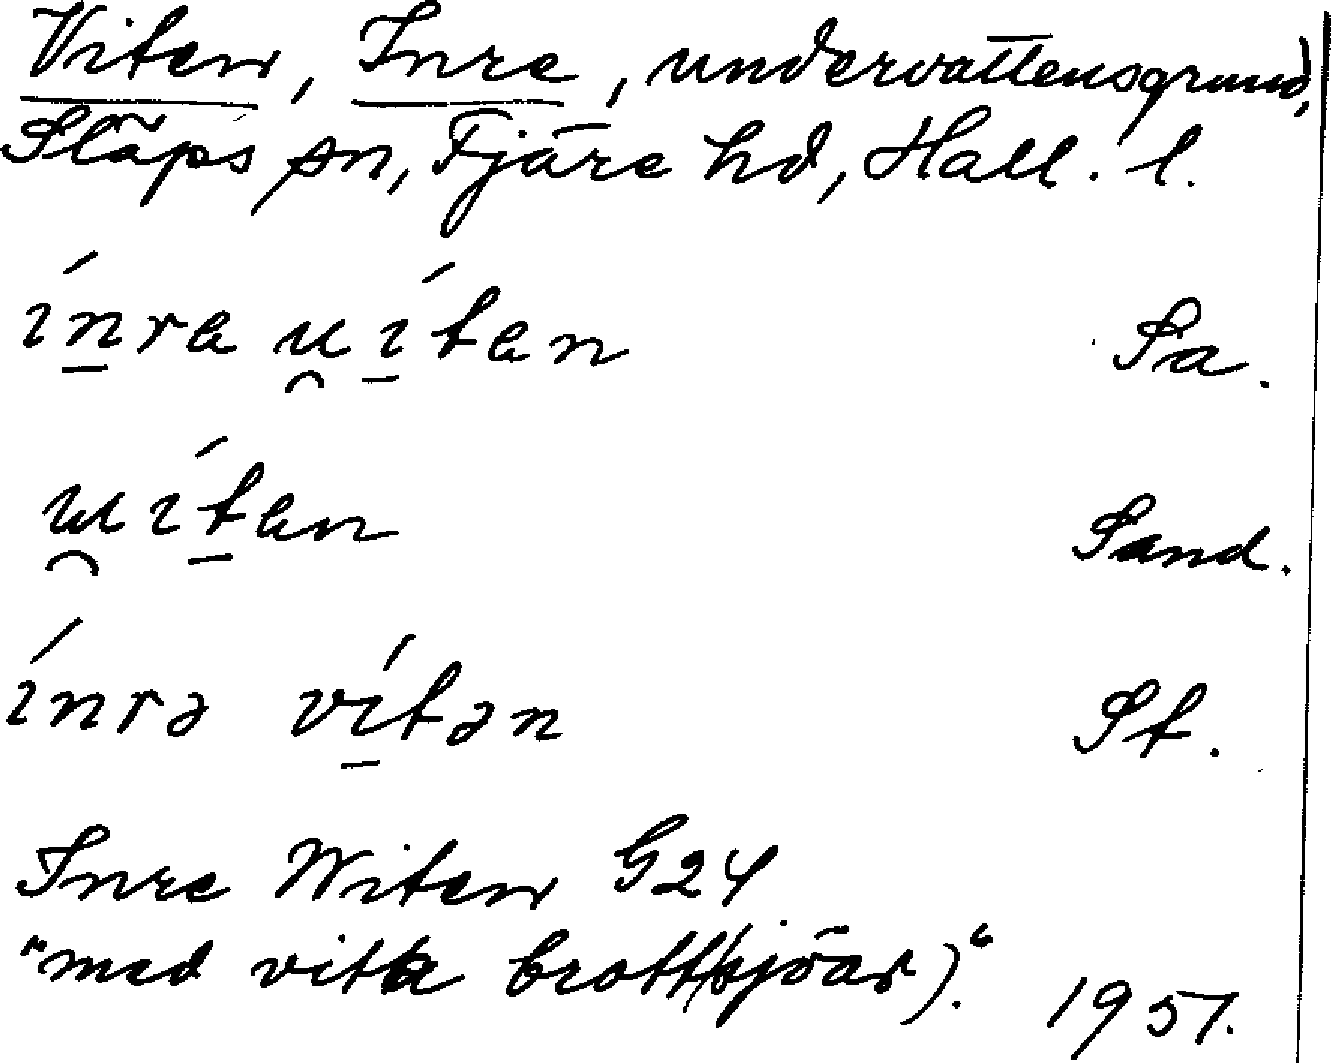 Viten, Inre, undervattensgrund,
Släps sn, Fjäre hd, Hall. l.
ínra u̯ítan Sa.
u̯ítan Sand.
ínrə vítən St.
Inre Witen G24
"med vita brott(sjöar)."
1951.